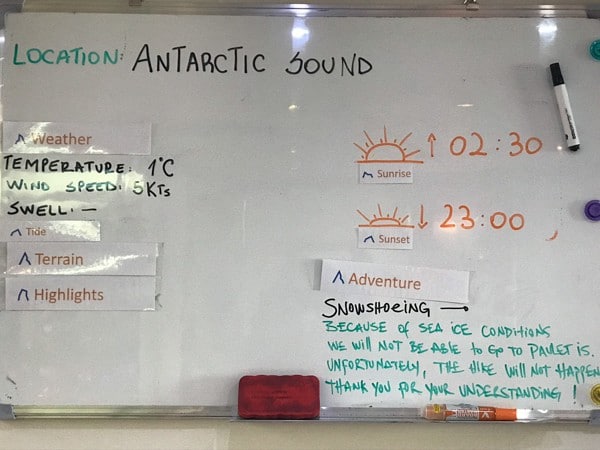 LOCATION: ANTARCTIC SOUND
Weather
TEMPERATURE: 1°C
WIND SPEED: 5KTS
SWELL: —
Tide
Terrain
Highlights
↑ 02:30
Sunrise
↓ 23:00
Sunset
Adventure
SNOWSHOEING →
BECAUSE OF SEA ICE CONDITIONS
WE WILL NOT BE ABLE TO GO TO PAULET IS.
UNFORTUNATELY, THE HIKE WILL NOT HAPPEN
THANK YOU FOR YOUR UNDERSTANDING!